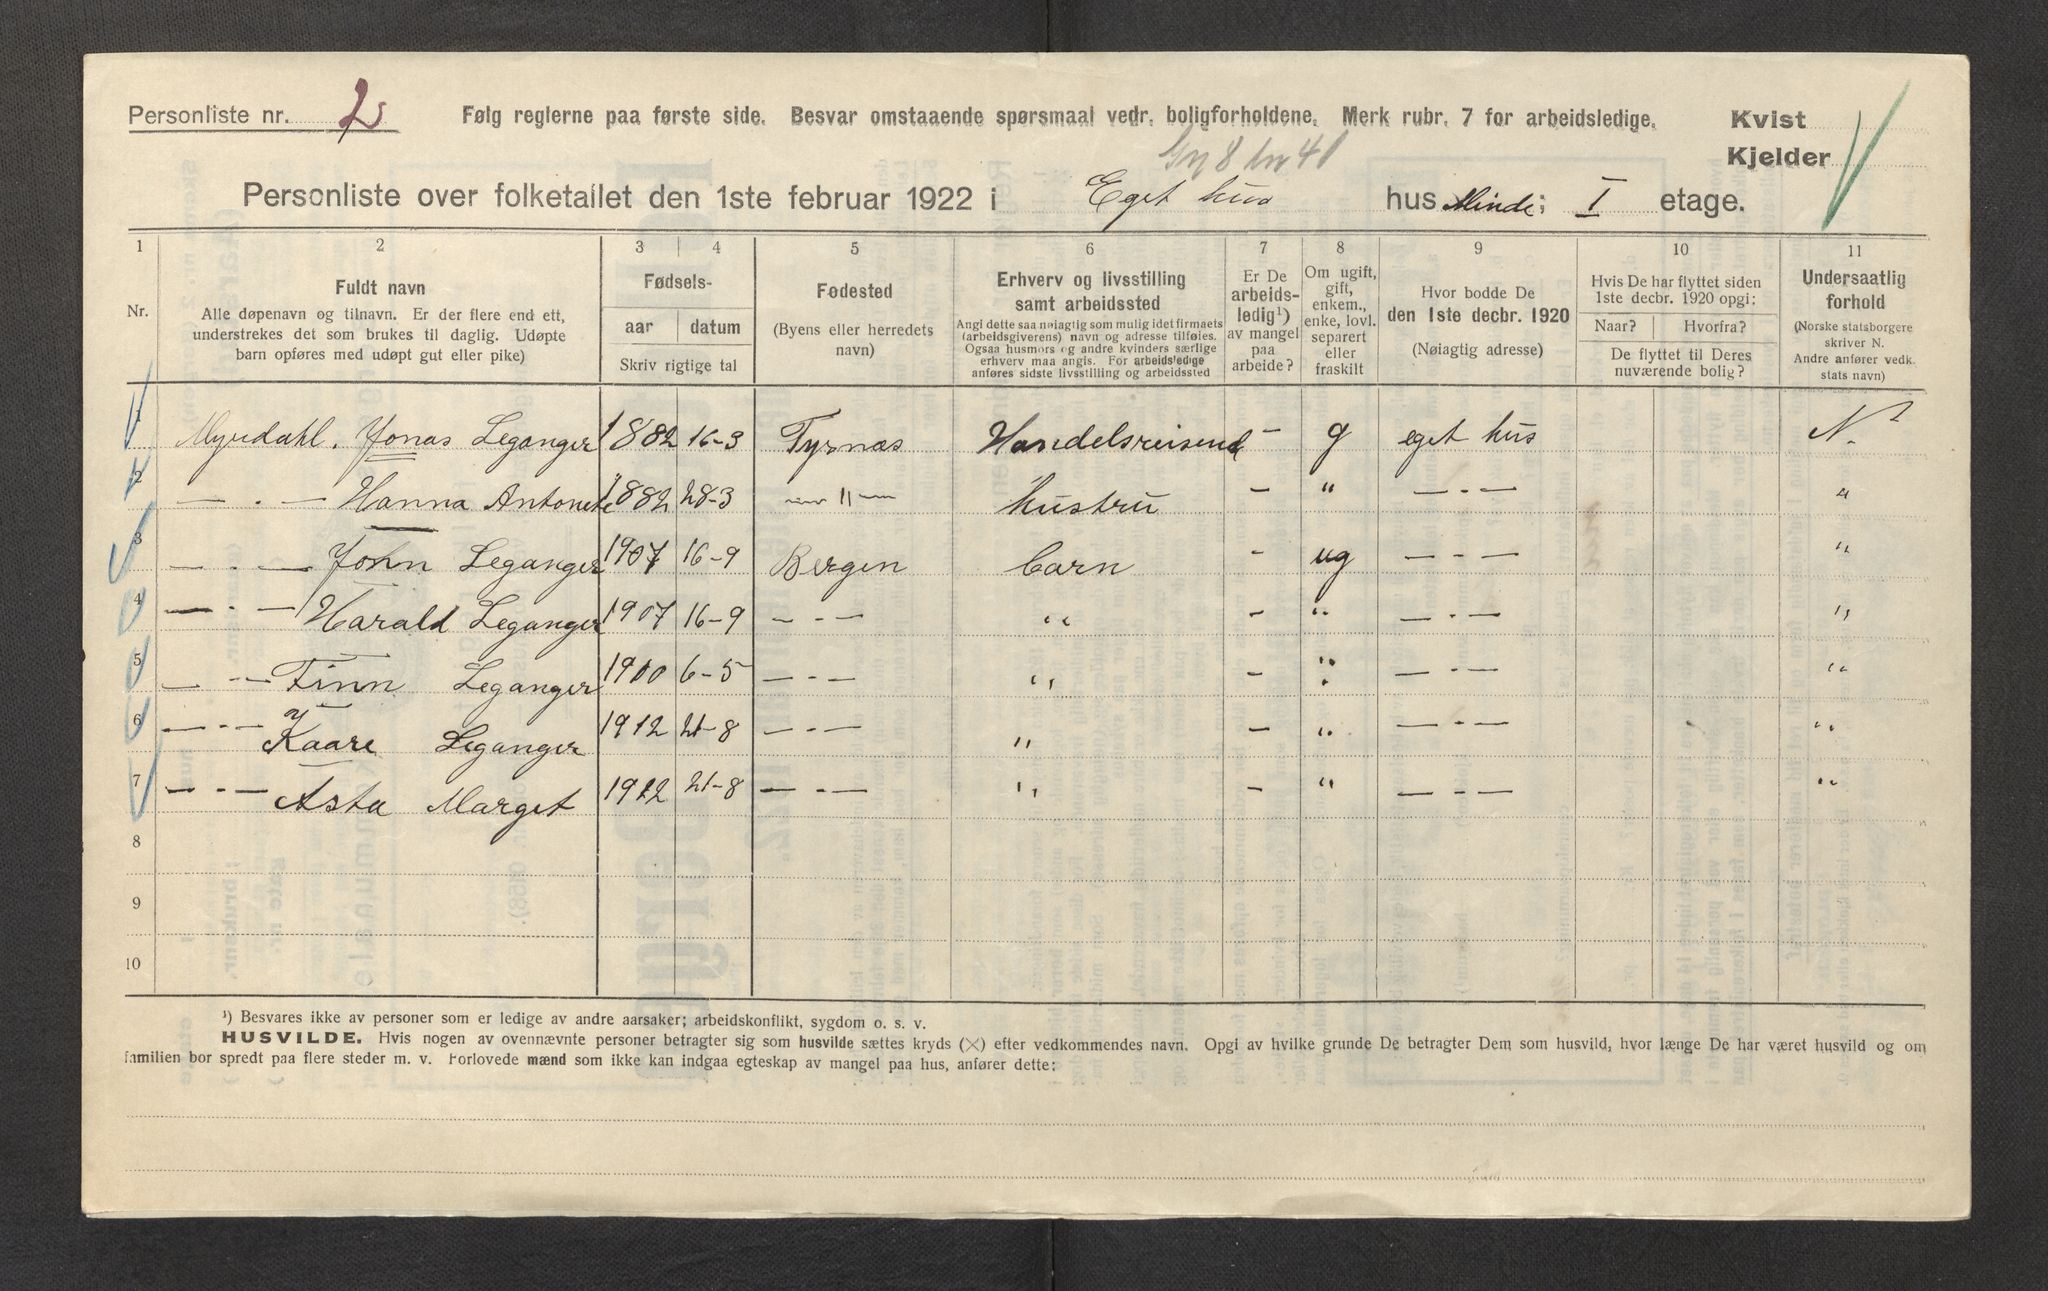 Personliste nr. 2 Følg reglerne paa første side. Besvar omstaaende spørsmaal vedr. boligforholdene. Merk rubr. 7 for arbeidsledige. Kvist
Kjelder
Gn 8 bn 41
Personliste over folketallet den 1ste februar 1922 i Eget hus hus Minde; I etage.
1 2 3 4 5 6 7 8 9 10 11
Nr.
Fuldt navn
Alle døpenavn og tilnavn. Er der flere end ett,
understrekes det som brukes til daglig. Udøpte
barn opføres med udøpt gut eller pike)
Fødsels-
aar datum
Skriv rigtige tal
Fødested
(Byens eller herredets
navn)
Erhverv og livsstilling
samt arbeidssted
Angi dette saa nøiagtig som mulig idet firmaets
(arbeidsgiverens) navn og adresse tilføies.
Ogsaa husmors og andre kvinders særlige
erhverv maa angis. For arbeidsledige
anføres sidste livsstilling og arbeidssted
Er De
arbeids-
ledig¹)
av mangel
paa
arbeide?
Om ugift,
gift,
enkem.,
enke, lovl.
separert
eller
fraskilt
Hvor bodde De
den 1ste decbr. 1920
(Nøiagtig adresse)
Hvis De har flyttet siden
1ste decbr. 1920 opgi:
Naar? Hvorfra?
De flyttet til Deres
nuværende bolig?
Undersaatlig
forhold
(Norske statsborgere
skriver N.
Andre anfører vedk.
stats navn)
1 Myrdahl. Jonas Leganger 1882 16-3 Tysnæs Handelsreisend - g eget hus N.
2 — . — Hanna Antonete 1882 28-3 — " — Hustru - " — . — "
3 — . — John Leganger 1907 16-9 Bergen barn - ug — . — "
4 — . — Harald Leganger 1907 16-9 — . — " - " — . — "
5 — . — Finn Leganger 1910 6-5 — . — " - " — . — "
6 — . — Kaare Leganger 1912 21-8 — . — " - " — . — "
7 — . — Asta Marget 1912 21-8 — . — " - " — . — "
8
9
10
¹) Besvares ikke av personer som er ledige av andre aarsaker; arbeidskonflikt, sygdom o. s. v.
HUSVILDE. Hvis nogen av ovennævnte personer betragter sig som husvilde sættes kryds (×) efter vedkommendes navn. Opgi av hvilke grunde De betragter Dem som husvild, hvor længe De har været husvild og om
familien bor spredt paa flere steder m. v. Forlovede mænd som ikke kan indgaa egteskap av mangel paa hus, anfører dette: